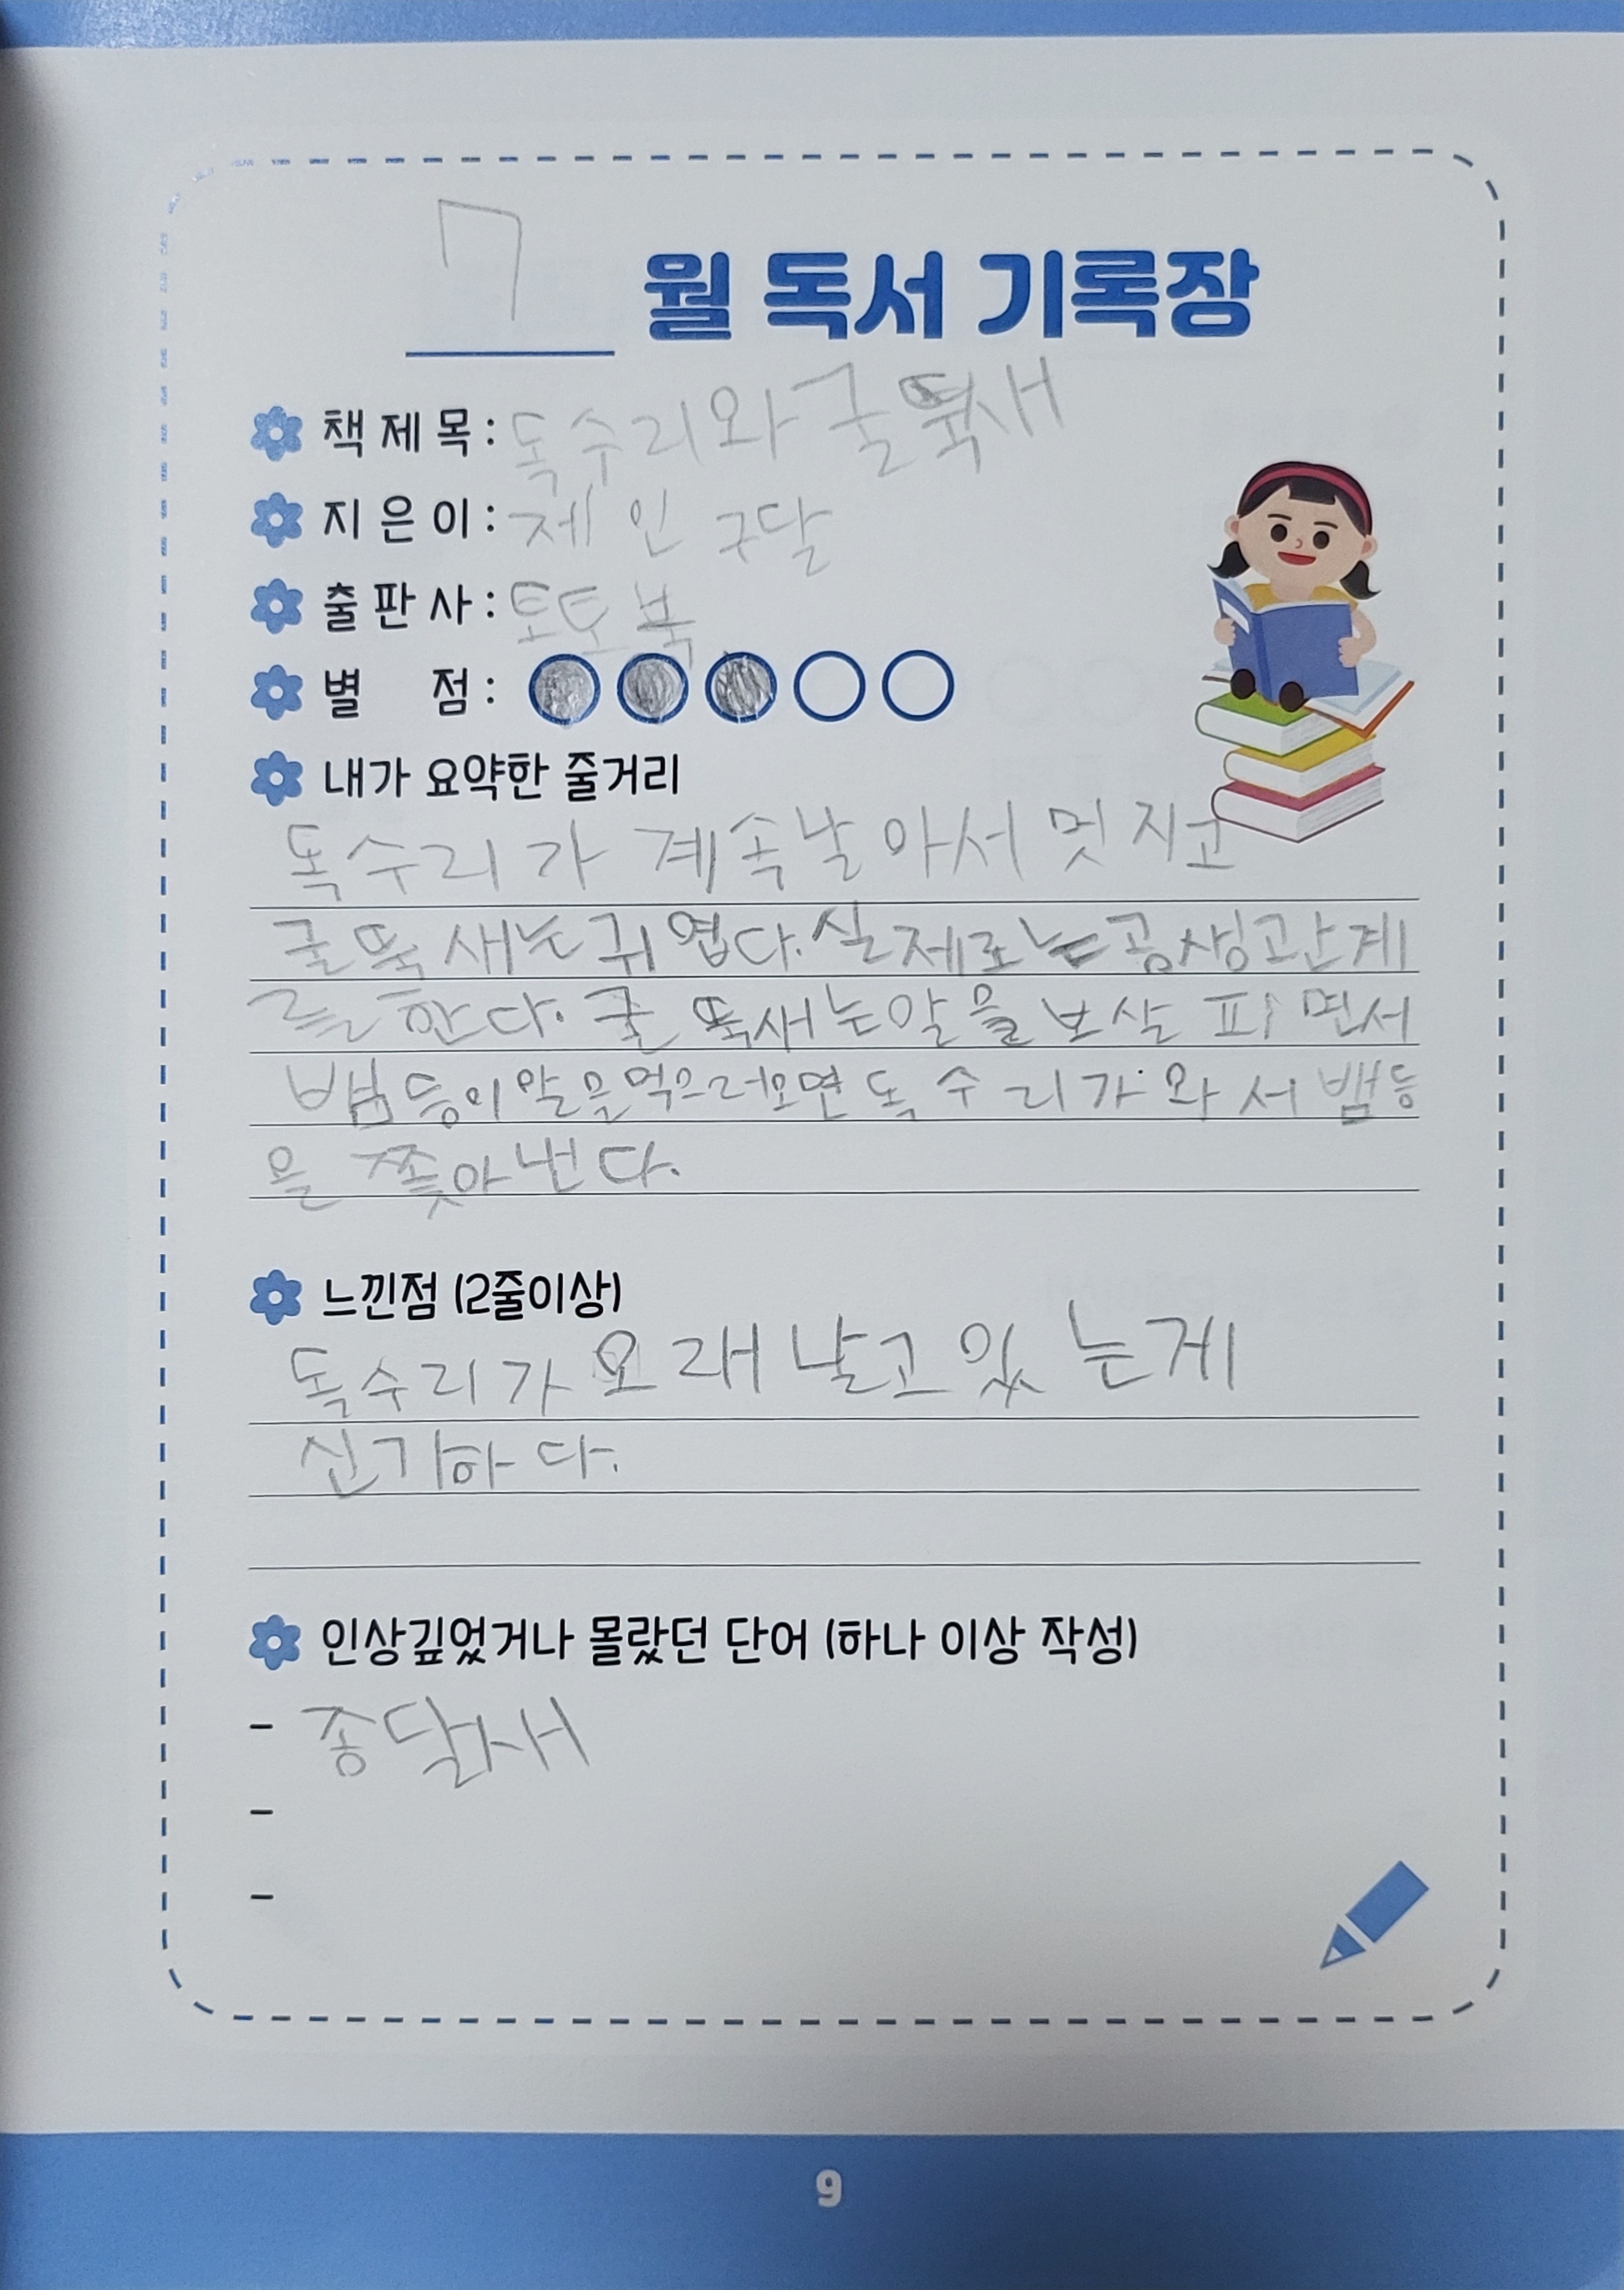 7월 독서 기록장
책 제 목 : 독수리와 굴뚝새
지 은 이 : 제인 구달
출 판 사 : 토토북
별 점 :
내가 요약한 줄거리
독수리가 계속 날아서 멋지고
굴뚝새는 귀엽다. 실제로는 공생관계
를 한다. 굴뚝새는 알을 보살피면서
뱀 등이 알을 먹으러 오면 독수리가 와서 뱀 등
을 쫓아낸다.
느낀점 (2줄이상)
독수리가 오래 날고 있는게
신기하다.
인상깊었거나 몰랐던 단어 (하나 이상 작성)
- 종달새
-
-
9